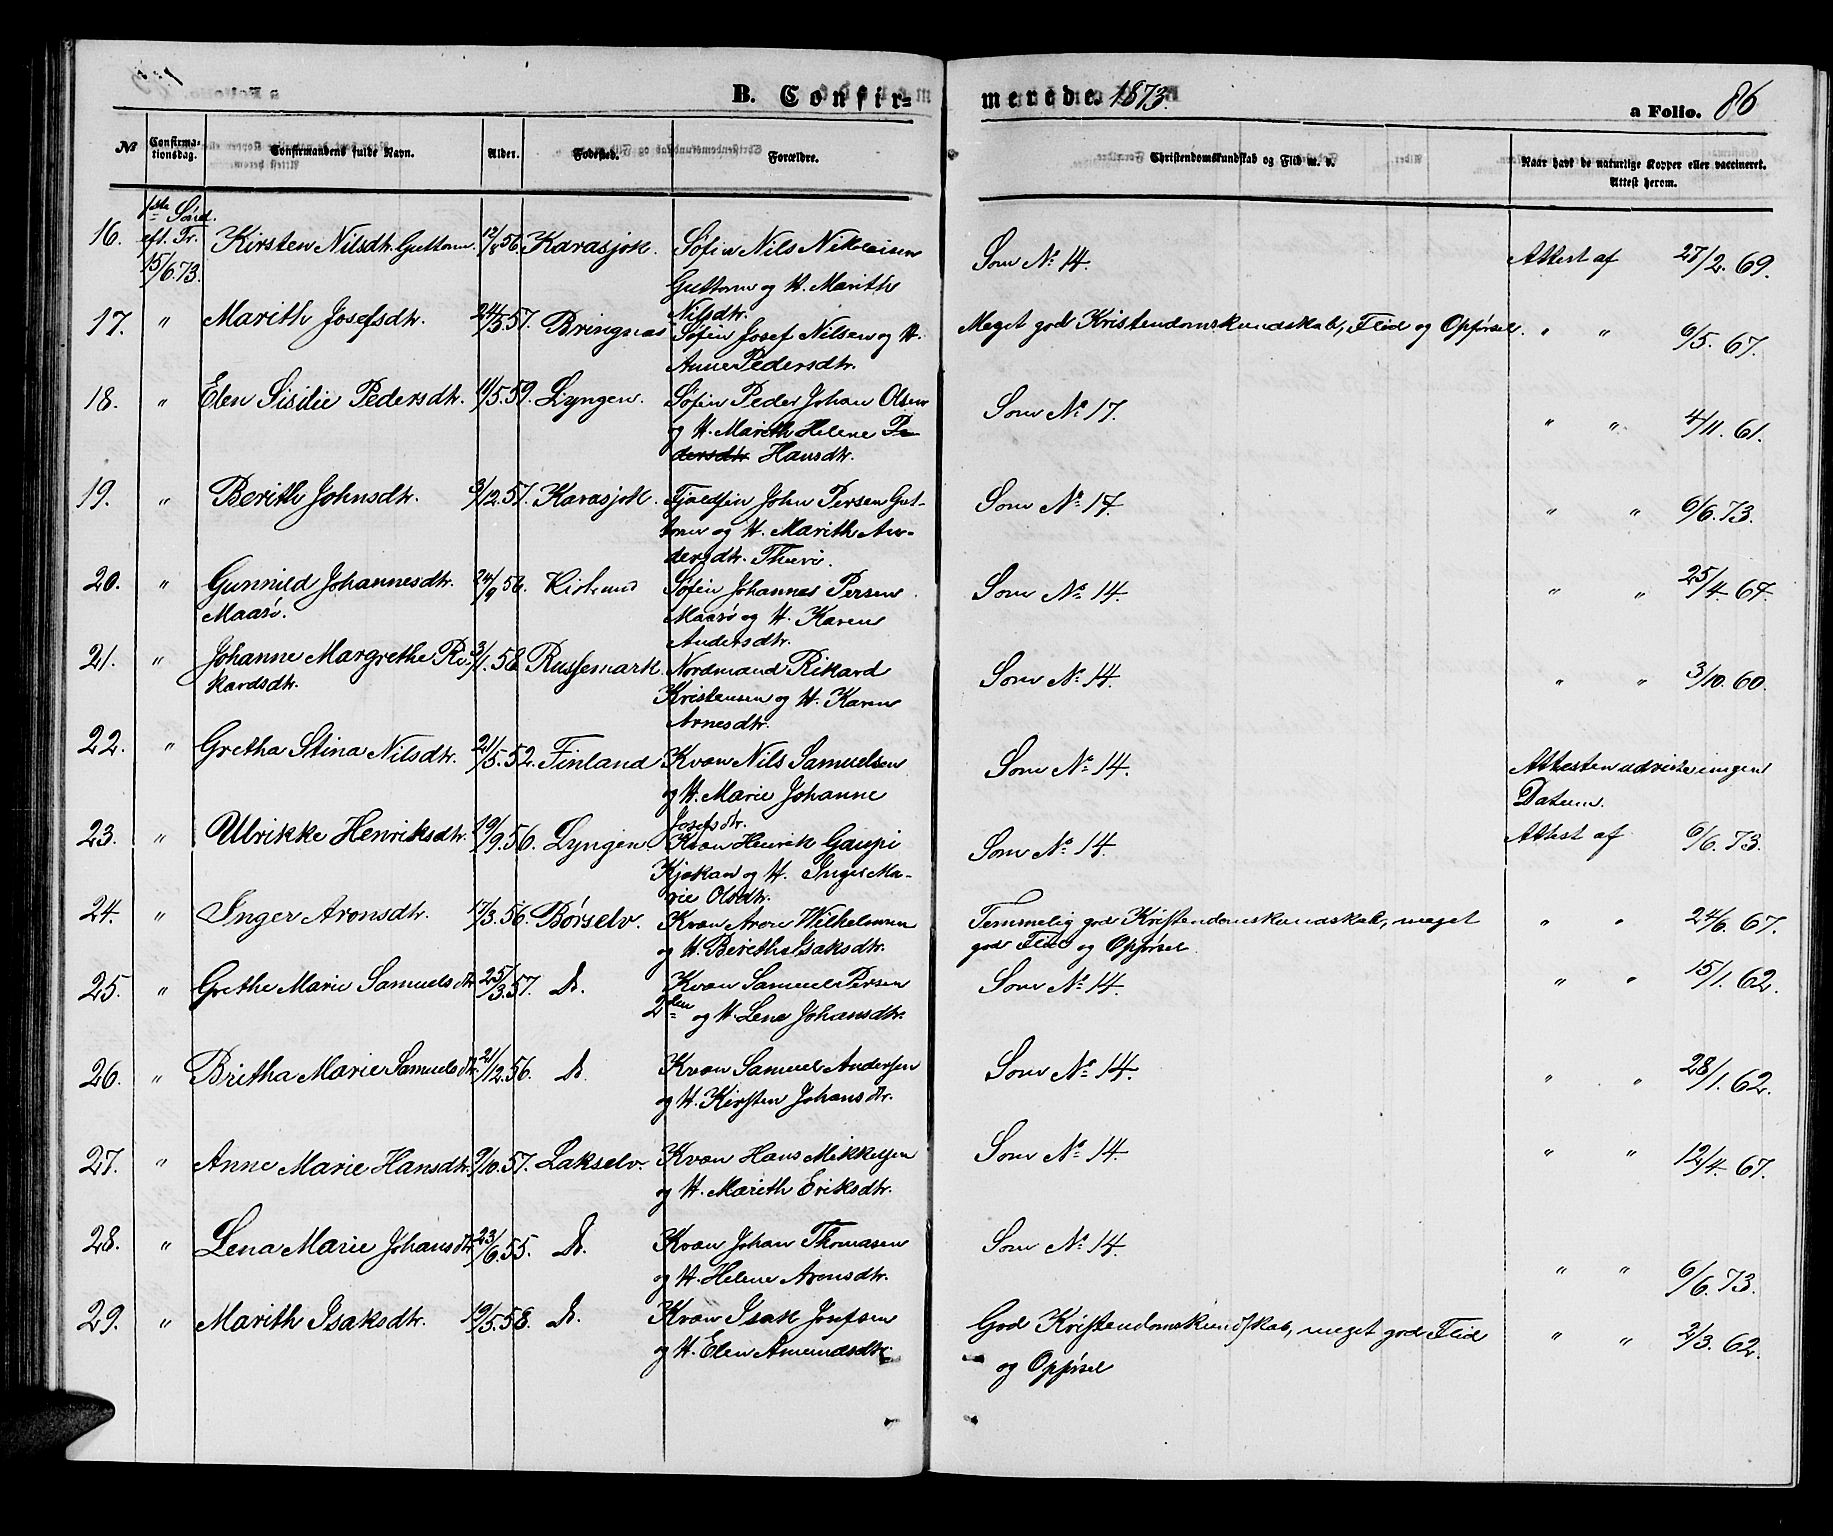 B. Confir=
merede. 1873.
a Folio. 86
No
Confirma-
tionsdag.
Confirmandens fulde Navn.
Alder.
Fødested.
Forældre.
Christendomskundskab og Flid m. v.
Naar havt de naturlige Kopper eller vaccineret.
Attest herom.
16. 1ste Sønd. eft. Tr. 15/6.73. Kirsten Nilsdtr. Guttorm 12/8 56. Karasjok. Søfin Nils Nikolaisen
Guttorm og H. Marith
Nilsdtr.
Som No 14. Attest af 27/2. 69.
17. " Marith Josefsdtr. 24/3 57. Bringnæs Søfin Josef Nilsen og H.
Anne Pedersdtr.
Meget god Kristendomskundskab, Flid og Opførsel. " " 6/5. 67.
18. " Elen Sisilie Pedersdtr. 11/5. 59. Lyngen. Søfin Peder Johan Olsen
og H. Marith Helene Pe
dersdtr Hansdtr.
Som No 17. " " 4/11. 61.
19. " Berith Johnsdtr. 3/12. 57. Karasjok. Fjeldfin John Persen Gut-
torm og H. Marith An-
dersdtr. Thuri.
Som No 17. " " 6/6. 73.
20. " Gunnild Johannesdtr.
Maasø.
24/9 56. Søfin Johannes Persen
Maasø og H. Karen
Andersdtr.
Som No 14. " " 25/4. 67.
21. " Johanne Margrethe Ri-
kardsdtr.
3/1. 58 Russemark. Nordmand Rikard
Kristensen og H. Karen
Arnesdtr.
Som No 14. " " 3/10. 60.
22. " Gretha Stina Nilsdtr. 21/5. 52. Finland Kvæn Nils Samuelsen
og H. Marie Johanne
Josefsdtr.
Som No 14. Attesten udviser ingen
Datum.
23. " Ulrikke Henriksdtr. 19/9. 56. Lyngen Kvæn Henrik Gaupi
Kjokan og H. Inger Ma-
rie Olsdtr.
Som No 14. Attest af 6/6. 73.
24. " Inger Aronsdtr. 17/3. 56. Børselv. Kvæn Aron Wilhelmsen
og H. Beritha Isaksdtr.
Temmelig god Kristendomskundskab, meget
god Flid og Opførsel.
" " 24/6. 67.
25. " Grethe Marie Samuelsdtr 25/3. 57. D. Kvæn Samuel Persen
2den og H. Lena Johansdtr.
Som No 14. " " 15/1. 62.
26. " Britha Marie Samuelsdtr. 21/12. 56. D. Kvæn Samuel Andersen
og H. Kirsten Johansdtr.
Som No 14. " " 28/1. 62.
27. " Anne Marie Hansdtr. 9/10. 57. Lakselv. Kvæn Hans Mikkelsen
og H. Marith Eriksdtr.
Som No 14. " " 12/4. 67.
28. " Lena Marie Johansdtr. 23/6. 55. D. Kvæn Johan Thomasen
og H. Helene Aronsdtr.
Som No 14. " " 6/6. 73.
29. " Marith Isaksdtr. 19/5. 58. D. Kvæn Isak Josefsen
og H. Elen Amundsdtr.
God Kristendomskundskab, meget god Flid
og Opførsel
" " 2/3. 62.